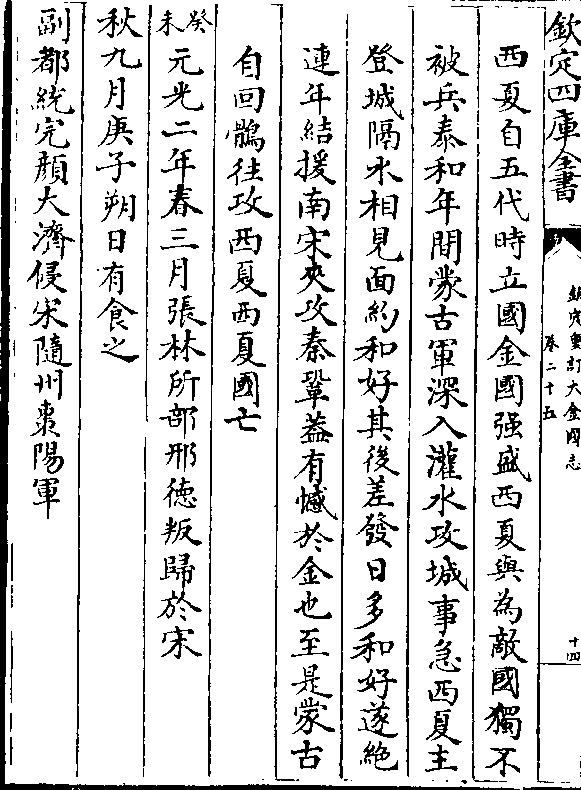 欽定四庫全書
欽定重訂大金國志
卷二十五
十四
西夏自五代時立國金國强盛西夏與為敵國獨不
被兵泰和年間蒙古軍深入灌水攻城事急西夏主
登城隔水相見面約和好其後差發日多和好遂絶
連年結援南宋夾攻秦鞏葢有憾於金也至是蒙古
自回鶻往攻西夏西夏國亡
癸未元光二年春三月張林所部邢德叛歸於宋
秋九月庚子朔日有食之
副都統完顔大濟侵宋隨州棗陽軍